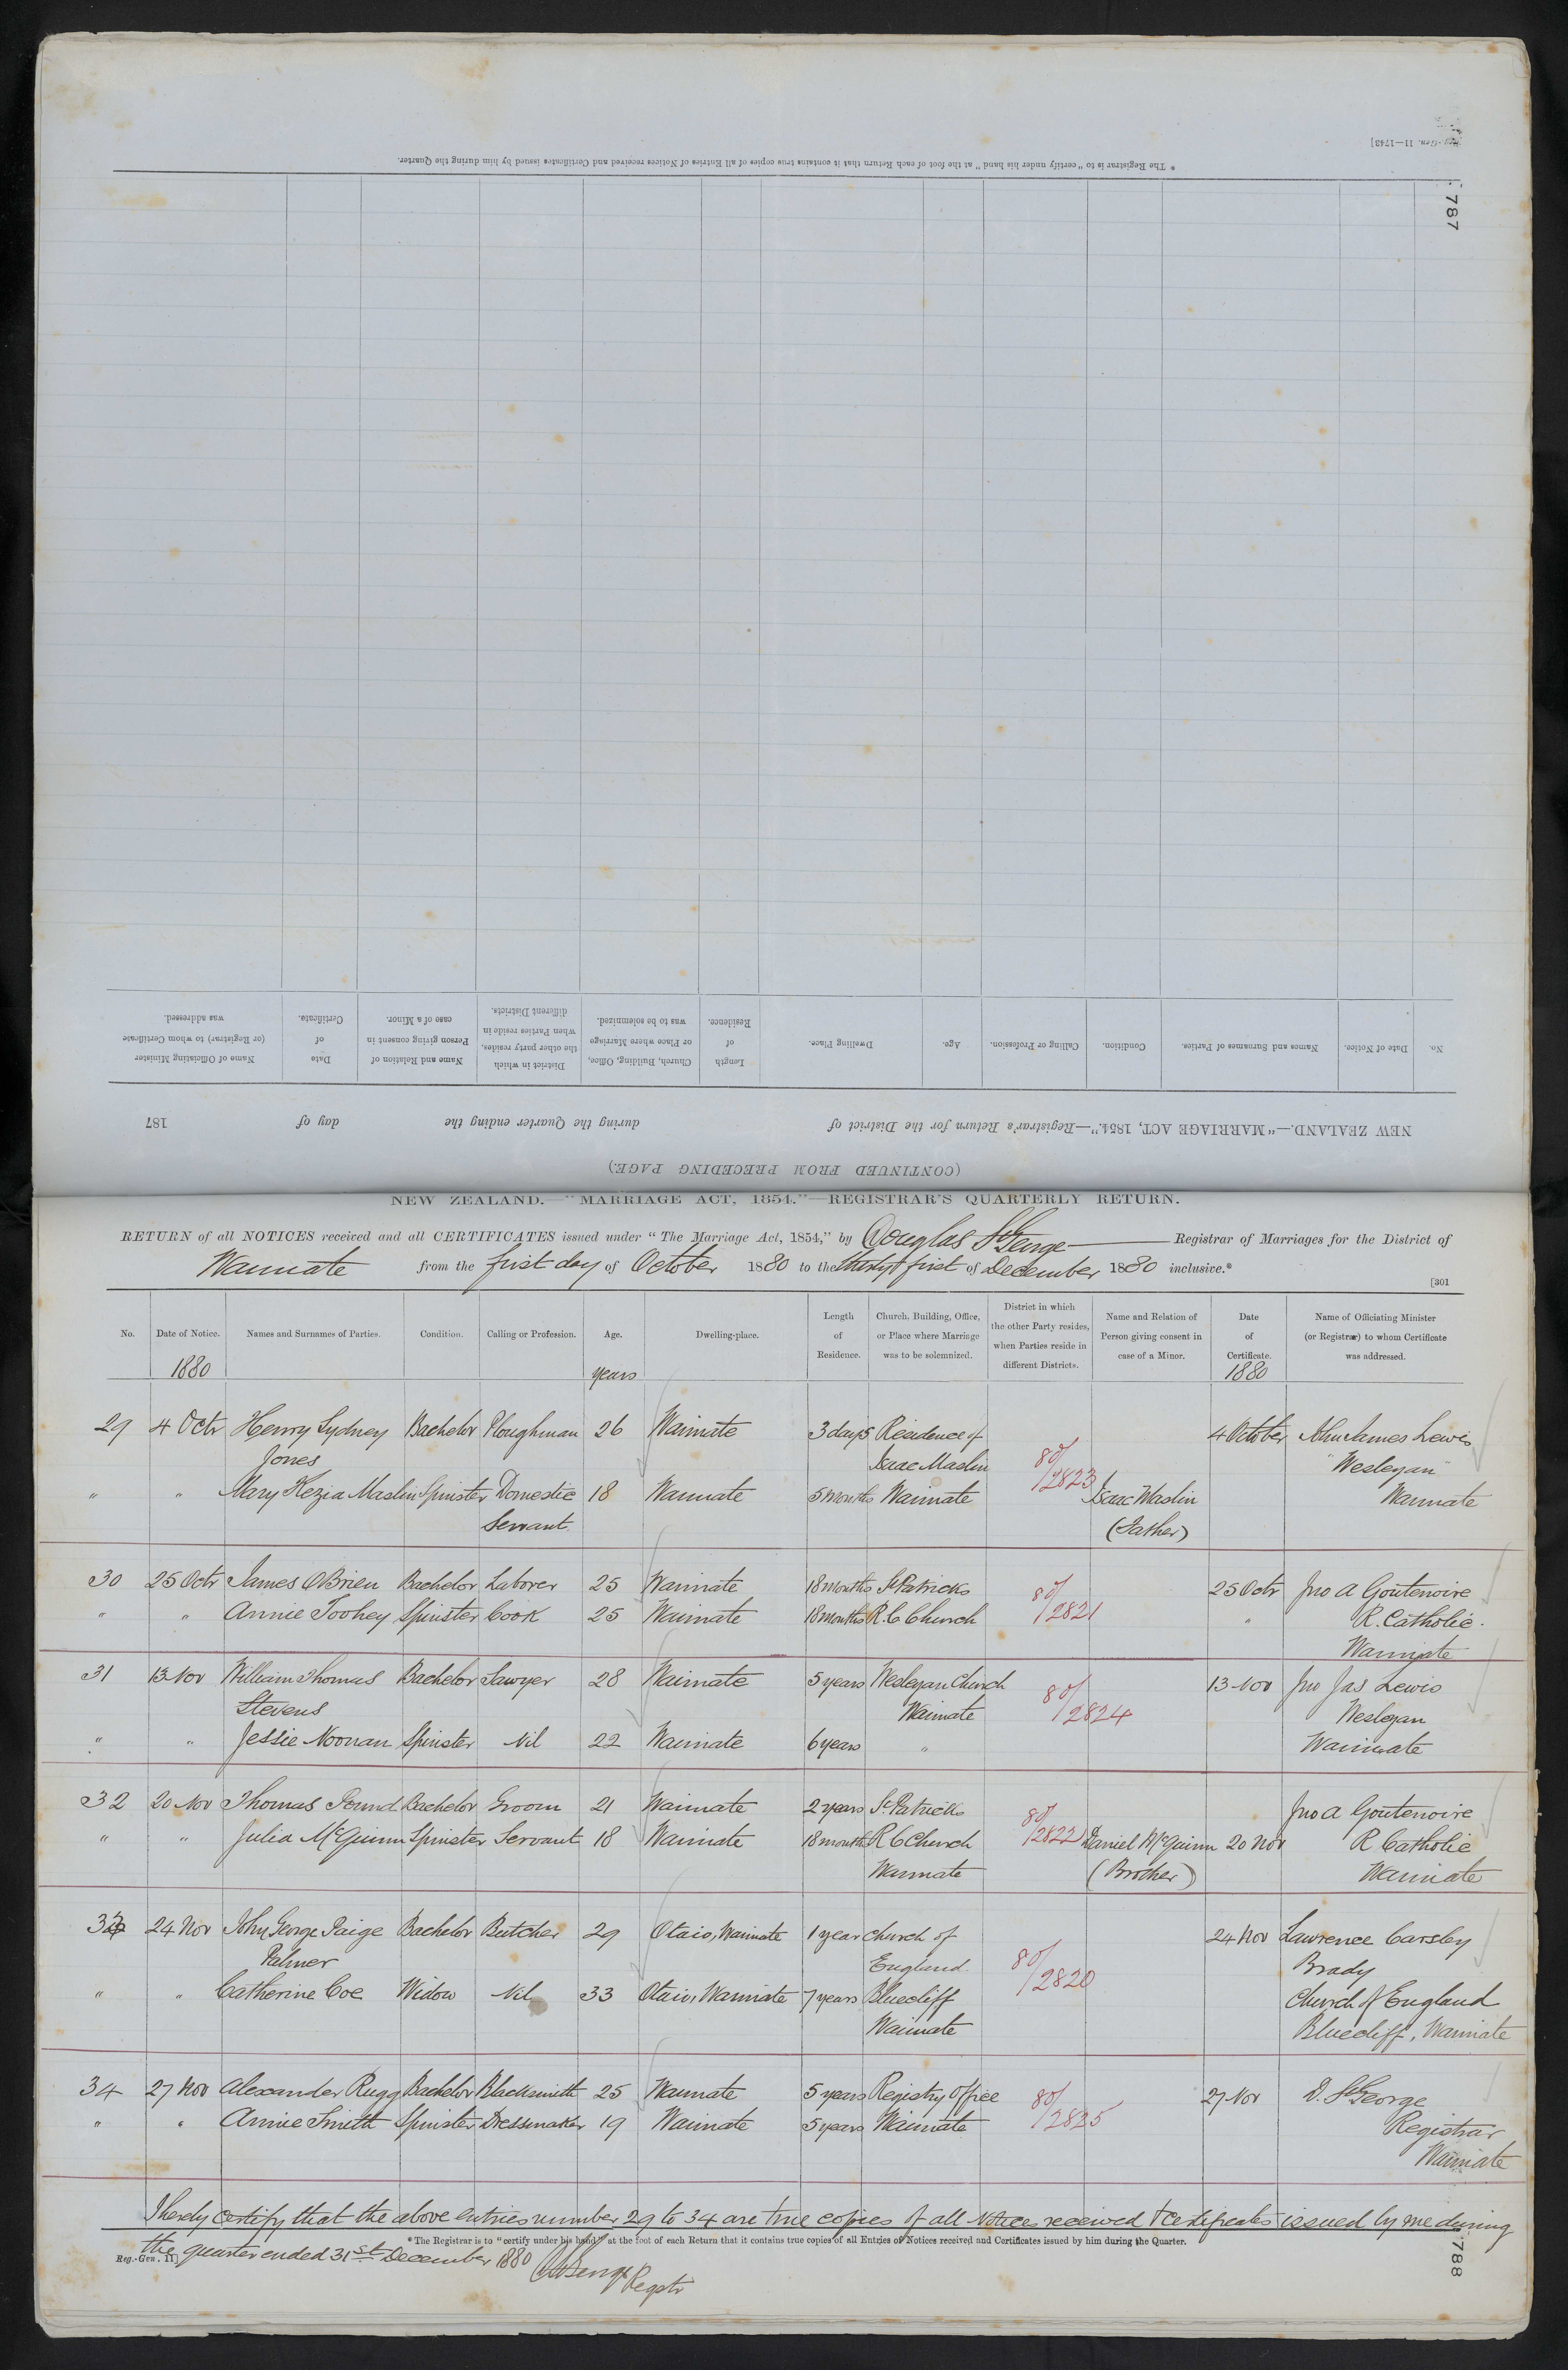 Reg.-Gen. 11—1743]
* The Registrar is to "certify under his hand" at the foot of each Return that it contains true copies of all Entries of Notices received and Certificates issued by him during the Quarter.
787
No.
Date of Notice.
Names and Surnames of Parties.
Condition.
Calling or Profession.
Age.
Dwelling Place.
Length of Residence.
Church, Building, Office, or Place where Marriage was to be solemnized.
District in which the other party resides, when Parties reside in different Districts.
Name and Relation of Person giving consent in case of a Minor.
Date of Certificate.
Name of Officiating Minister (or Registrar) to whom Certificate was addressed.
NEW ZEALAND.—"MARRIAGE ACT, 1854."—Registrar's Return for the District of during the Quarter ending the day of 187
(CONTINUED FROM PRECEDING PAGE.)
NEW ZEALAND.—"MARRIAGE ACT, 1854."—REGISTRAR'S QUARTERLY RETURN.
RETURN of all NOTICES received and all CERTIFICATES issued under "The Marriage Act, 1854," by Douglas St George Registrar of Marriages for the District of
Waimate from the first day of October 1880 to the thirty first of December 1880 inclusive.*
[301
No.
Date of Notice.
Names and Surnames of Parties.
Condition.
Calling or Profession.
Age.
Dwelling-place.
Length of Residence.
Church, Building, Office, or Place where Marriage was to be solemnized.
District in which the other Party resides, when Parties reside in different Districts.
Name and Relation of Person giving consent in case of a Minor.
Date of Certificate.
Name of Officiating Minister (or Registrar) to whom Certificate was addressed.
1880 years 1880
29 4 Octr Henry Sydney Bachelor Ploughman 26 Waimate 3 days Residence of 4 October John James Lewis
Jones Isaac Maslin 80/2823 "Wesleyan"
" " Mary Kezia Maslin Spinster Domestic 18 Waimate 5 months Waimate Isaac Maslin Waimate
Servant (Father)
30 25 Octr James O'Brien Bachelor Laborer 25 Waimate 18 months St Patricks 80/2821 25 Octr Jno A Goutenoire
" " Annie Toohey Spinster Cook 25 Waimate 18 months R. C Church " R. Catholic.
Waimate
31 13 Nov William Thomas Bachelor Sawyer 28 Waimate 5 years Wesleyan Church 13 Nov Jno Jas Lewis
Stevens Waimate 80/2824 Wesleyan
" " Jessie Noonan Spinster Nil 22 Waimate 6 years " Waimate
32 20 Nov Thomas Pound Bachelor Groom 21 Waimate 2 years St Patricks Jno A Goutenoire
" " Julia McGuinn Spinster Servant 18 Waimate 18 months R C Church 80/2822 Daniel McGuinn 20 Nov R Catholic
Waimate (Brother) Waimate
33 24 Nov John George Paige Bachelor Butcher 29 Otaio, Waimate 1 year Church of 24 Nov Lawrence Carsley
Palmer England 80/2820 Brady
" " Catherine Coe Widow Nil 33 Otaio, Waimate 7 years Bluecliff Church of England
Waimate Bluecliff, Waimate
34 27 Nov Alexander Rugg Bachelor Blacksmith 25 Waimate 5 years Registry Office 80/2825 27 Nov D. St George
" " Annie Smith Spinster Dressmaker 19 Waimate 5 years Waimate Registrar
Waimate
I hereby certify that the above entries number 29 to 34 are true copies of all Notices received & Certificates issued by me during
* The Registrar is to "certify under his hand" at the foot of each Return that it contains true copies of all Entries of Notices received and Certificates issued by him during the Quarter.
the quarter ended 31st December 1880
Reg.-Gen. 11]
D St George Registr
788